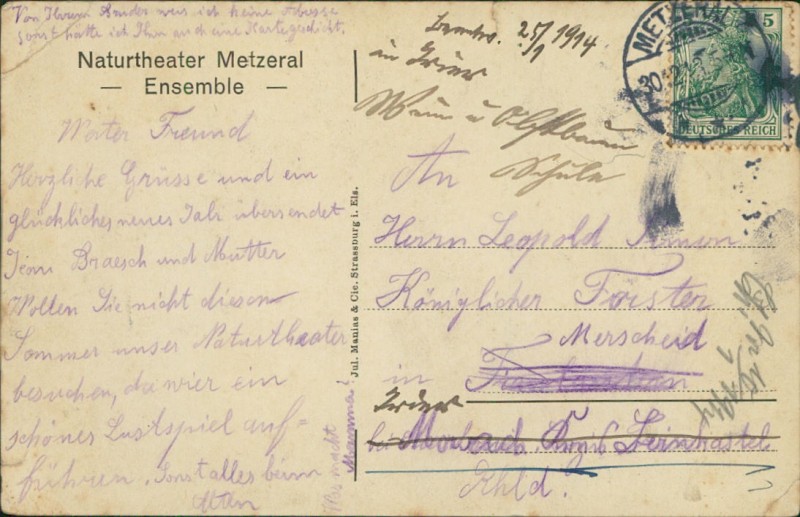 Von Herrn Ander weis ich keine Adresse
sonst hätte ich Ihm auch eine Karte geschickt.
Naturtheater Metzeral
— Ensemble —
Werter Freund
Herzliche Grüsse und ein
glückliches neues Jahr übersendet
Jean Braesch und Mutter
Wollen Sie nicht diesen
Sommer unser Naturtheater
besuchen, da wier ein
schönes Lustspiel auf=
führen. Sonst alles beim
Alten
Was macht
Mamma?
Jul. Manias & Cie. Strassburg i. Els.
25/1 1914
in Trier
Wein u Obstbau
Schule
METZERAL
30.12.
5
DEUTSCHES REICH
An
Herrn Leopold Simon
Königlicher Förster
Merscheid
in
Trier
bei Morbach
Rhld.